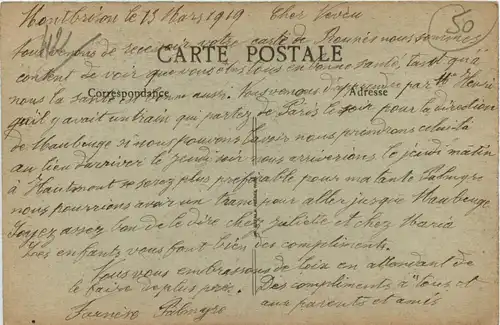 Montbrison le 13 Mars 1919 Cher Neveu
50
nous venons de recevoir votre carte de nous sommes
CARTE POSTALE
content de voir que vous êtes tous en bonne santé, tant qu'à
Correspondance Adresse
nous la santé est bonne aussi. nous venons d'apprendre par Mr Henri
qu'il y avait un train qui partez de Paris le soir pour la direction
de Maubeuge si nous pouvons l'avoir nous prendrons celui là
au lieu d'arriver le jeudi soir nous arriverions le jeudi matin
à Hautmont se serez plus préférable pour ma tante Palmyre
nous pourrions avoir un tram pour aller jusque Maubeuge.
Soyez assez bon de le dire chez Juliette et chez Maria
Les enfants vous font bien des compliments.
Nous vous embrassons de loin en attendant de
le faire de plus près. Des compliments à tous et
Palmyre aux parents et amis